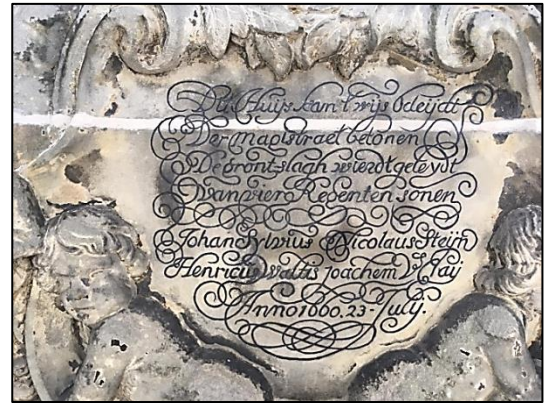 Dit Huijs kan t wijs beleijdt
Der magistraet betonen
De gront-slagh wierdt geleydt
van vier Regenten sonen
Johan Sylvius Nicolaus Steijn
Henricus Wallis Joachem
Anno 1660. 23 - July.